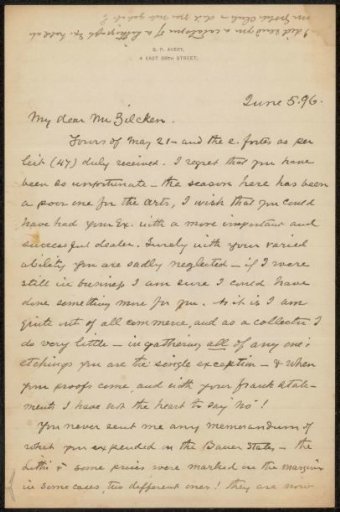 S. P. AVERY,
4 EAST 38TH STREET.
June 5.96.
My dear Mr Zilcken.
Yours of May 21 - and the e. fortes as per
list (47) duly received. I regret that you have
been so unfortunate - the season here has been
a poor one for the Arts, I wish that you could
have had your Ex. with a more important and
successful dealer. Surely with your varied
ability you are sadly neglected - if I were
still in business I am sure I could have
done something more for you. As it is I am
quite out of all commerce, and as a collector I
do very little - in gathering all of any one's
etchings you are the single exception - & when
your proofs come, and with your frank state-
ments I have not the heart to say "No"!
You never sent me any memorandum of
what you expended in the Bauer States - the
litho &amp; some prices were marked on the margins
in some cases, two different ones! they are now